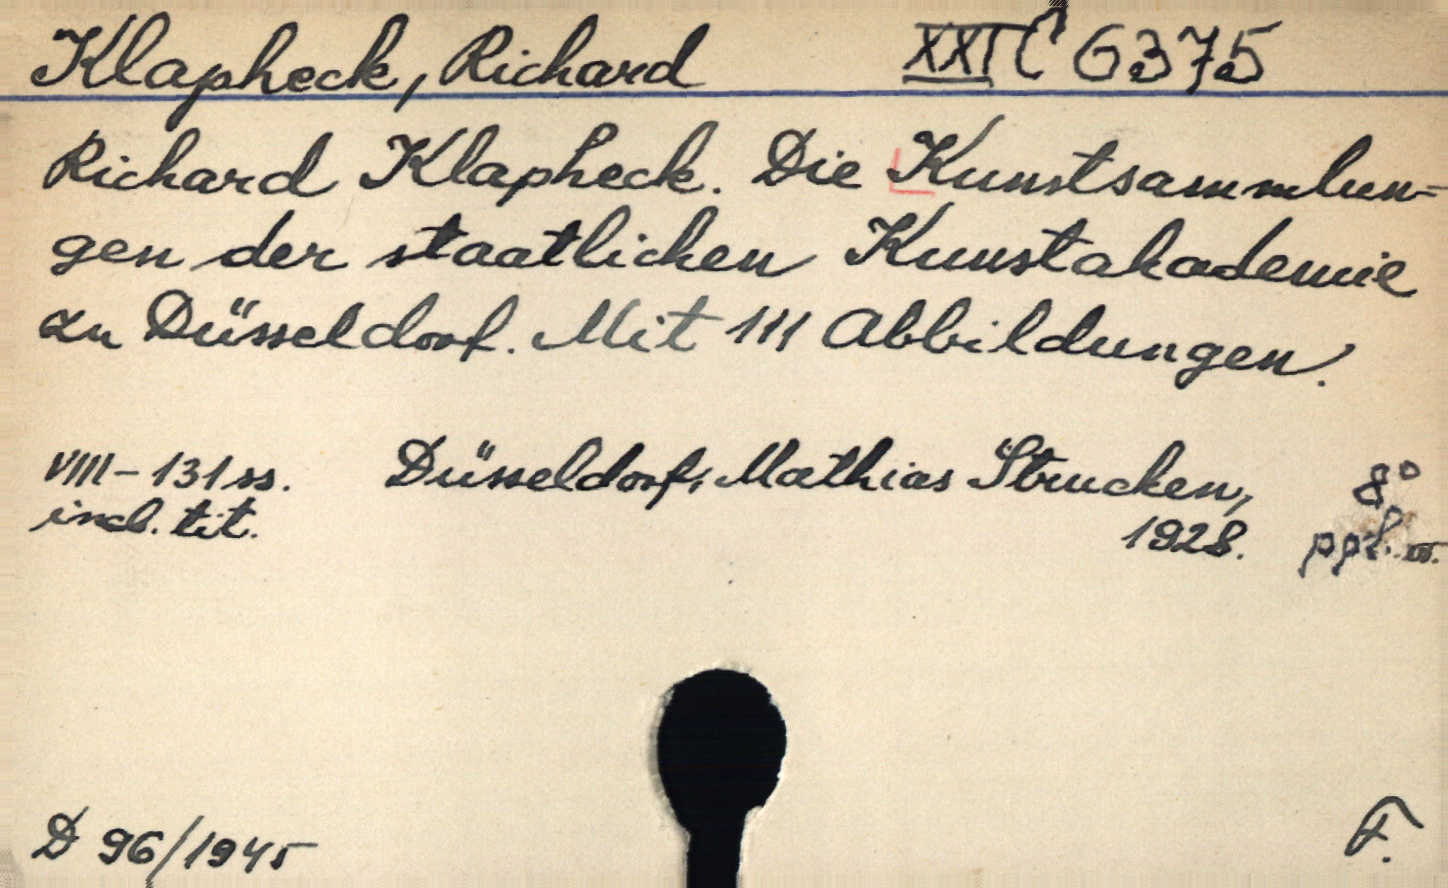 Klapheck, Richard XXI C 6375
Richard Klapheck. Die Kunstsammlun=
gen der staatlichen Kunstakademie
zu Düsseldorf. Mit 111 Abbildungen.
VIII-131 ss. Düsseldorf, Mathias Strucken, 8°
incl. tit. 1928.
D 96/1945 F.